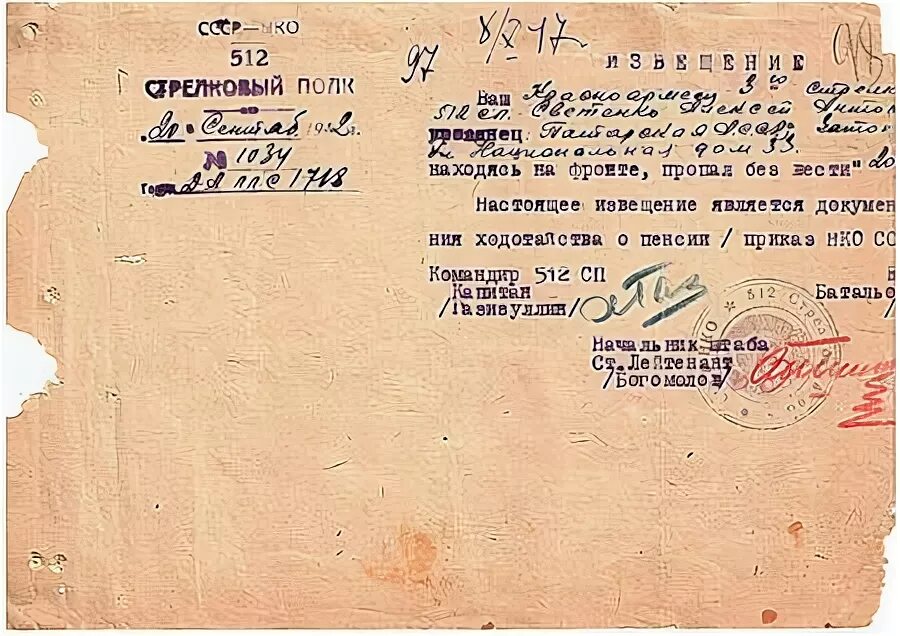 СССР—НКО
512
СТРЕЛКОВЫЙ ПОЛК
20. Сентяб 1942г.
№ 1034
ДА ППС 1718
97
8/X-17
ИЗВЕЩЕНИЕ
Ваш Красноармеец 3 стрелк
512 сп. Светенко Алексей Анто
уроженец: Татарская АССР. Затон
ул Национальная дом 33.
находясь на фронте, пропал без вести "20
Настоящее извещение является докумен
ния ходотайства о пенсии / приказ НКО СС
Командир 512 СП
Капитан
/Газизуллин/
Баталь
Начальник штаба
Ст. Лейтенант
/Богомолов/
НКО * 512 Стрел